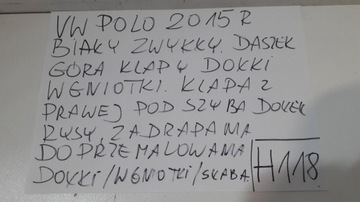 VW POLO 2015R
BIAŁY ZWYKŁY. DASZEK
GÓRA KLAPY DOŁKI
WGNIOTKI. KLAPA Z
PRAWEJ POD SZYBA DOŁEK
RYSY, ZADRAPANIA
DO PRZEMALOWANIA
DOŁKI/WGNIOTKI/SKAZA.
H118